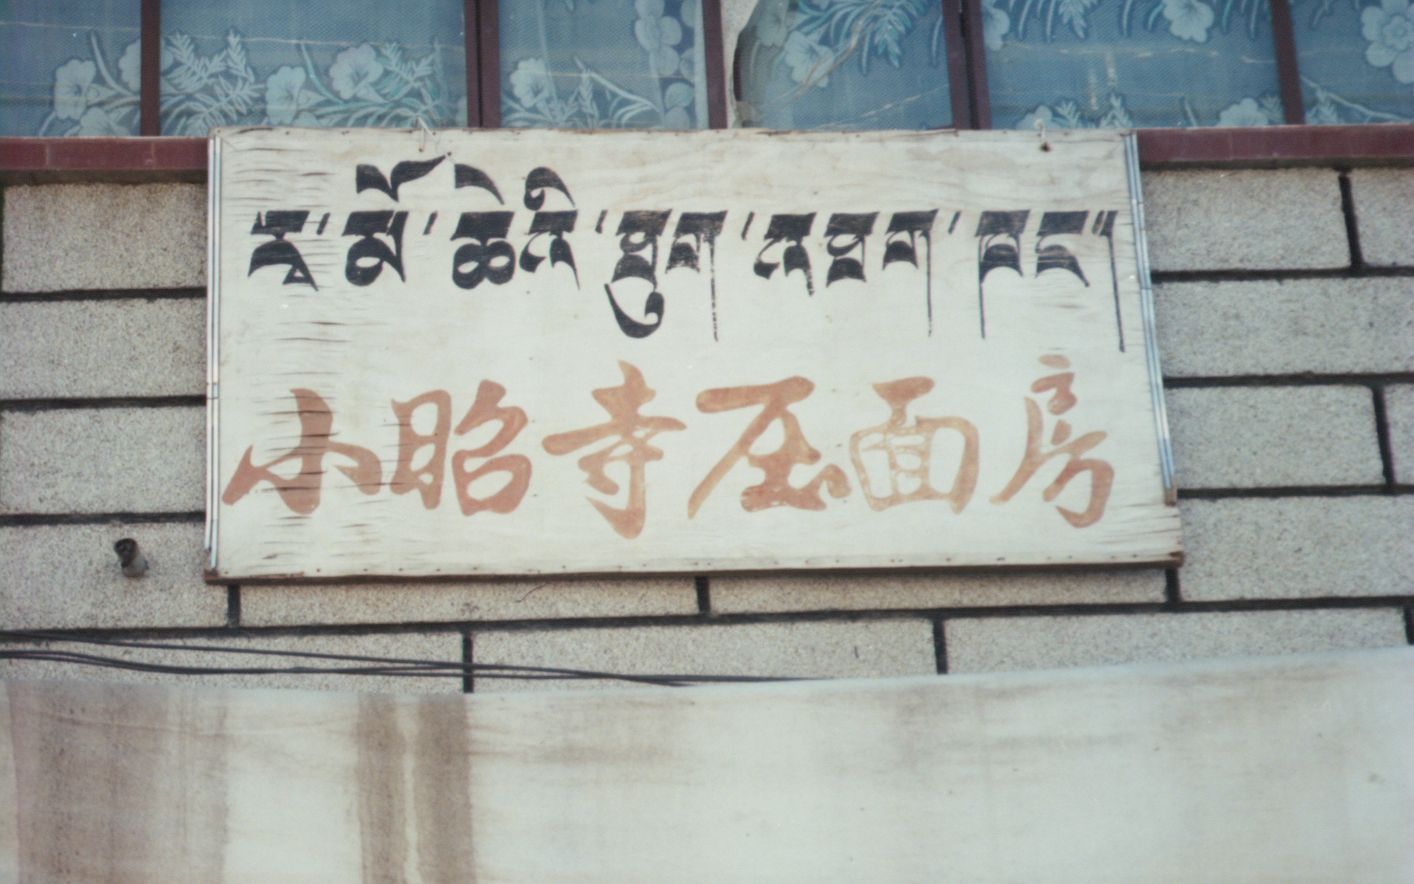 ར་མོ་ཆེའི་ཐུག་འཐག་ཁང་།
小昭寺压面房